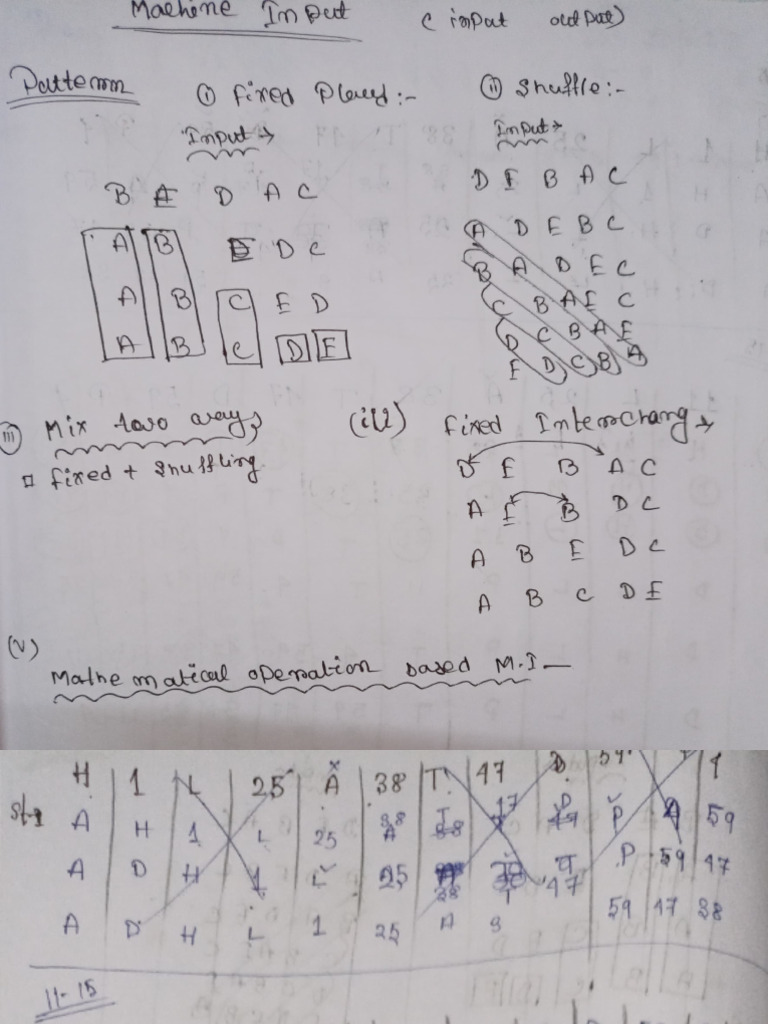 Machine Input (input output)
Pattern (i) Fixed Place:- (ii) Shuffle:-
Input→ Input→
B E D A C
D E B A C
A B E D C
A D E B C
A B C E D
B A D E C
A B C D E
C B A E C
D C B A E
E D C B A
(iii) Mix two ways
Fixed + Shuffling
(iv) Fixed Interchang→
D E B A C
A E B D C
A B E D C
A B C D E
(V)
Mathematical operation based M.I—
H 1 L 25 A 38 T 47 D 59 P 9
St-1 A H 1 L 25 38 T 47 P 59
A D H 1 L 25 38 T 47 P 59 47
A D H L 1 25 59 47 38
11-15